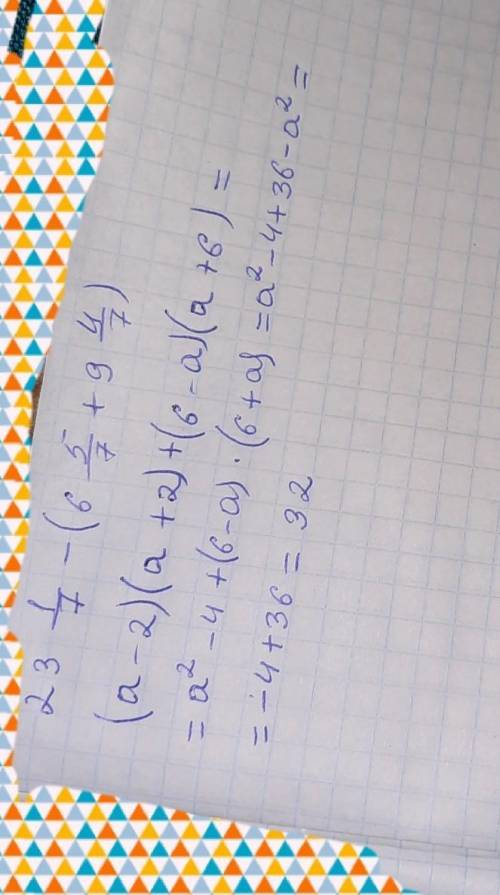 23 1/7 - (6 5/7 + 9 4/7)
(a-2)(a+2)+(6-a)(a+6)=
=a²-4+(6-a)·(6+a)=a²-4+36-a²=
=-4+36=32